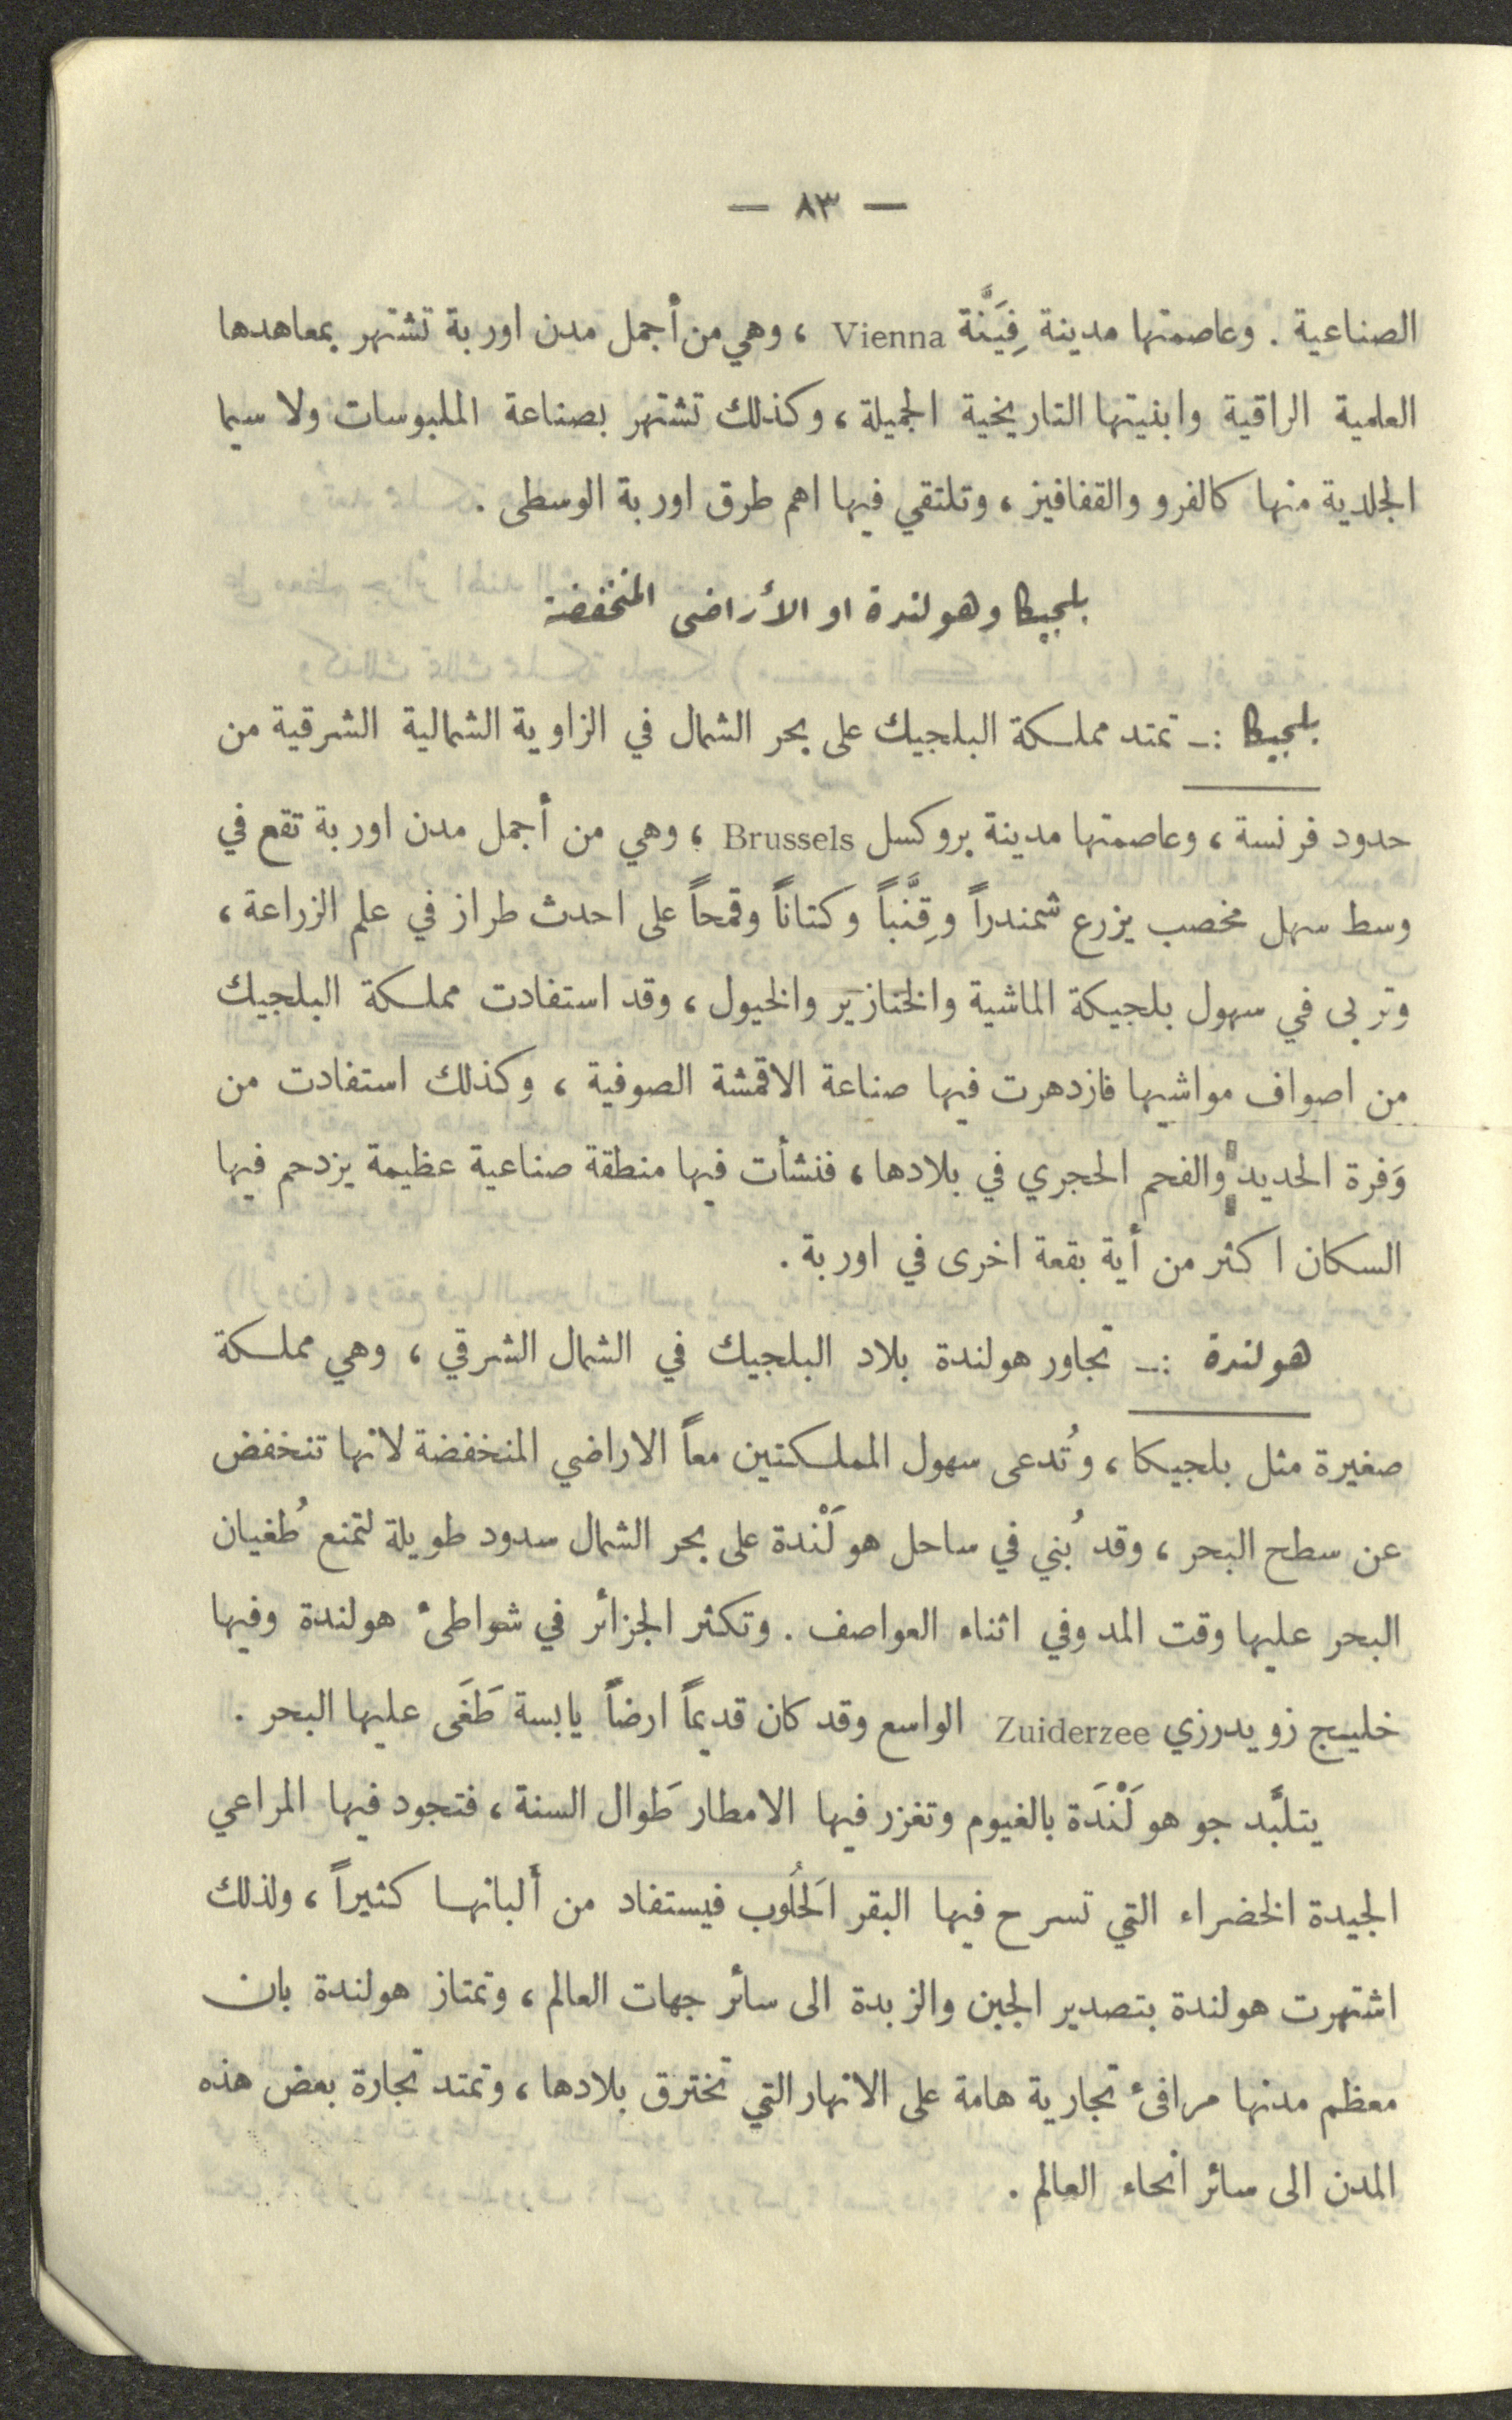 — ٨٣ —
الصناعية . وعاصمتها مدينة فِيَنَّة Vienna ، وهي من أجمل مدن اوربة تشتهر بمعاهدها
العلمية الراقية وابنيتها التاريخية الجميلة ، وكذلك تشتهر بصناعة الملبوسات ولا سيما
الجلدية منها كالفرو والقفافيز ، وتلتقي فيها اهم طرق اوربة الوسطى .
بلجيكا وهولندة او الأراضى المنخفضة
بلجيكا :ـ تمتد مملكة البلجيك على بحر الشمال في الزاوية الشمالية الشرقية من
حدود فرنسة ، وعاصمتها مدينة بروكسل Brussels ، وهي من أجمل مدن اوربة تقع في
وسط سهل مخصب يزرع شمندراً وقِنَّباً وكتاناً وقمحاً على احدث طراز في علم الزراعة ،
وتربى في سهول بلجيكة الماشية والخنازير والخيول ، وقد استفادت مملكة البلجيك
من اصواف مواشيها فازدهرت فيها صناعة الاقمشة الصوفية ، وكذلك استفادت من
وَفرة الحديد والفحم الحجري في بلادها ، فنشأت فيها منطقة صناعية عظيمة يزدحم فيها
السكان اكثر من أية بقعة اخرى في اوربة .
هولندة :ـ تجاور هولندة بلاد البلجيك في الشمال الشرقي ، وهي مملكة
صغيرة مثل بلجيكا ، وتُدعى سهول المملكتين معاً الاراضي المنخفضة لانها تنخفض
عن سطح البحر ، وقد بُني في ساحل هولَنْدة على بحر الشمال سدود طويلة لتمنع طُغيان
البحر عليها وقت المد وفي اثناء العواصف . وتكثر الجزائر في شواطىء هولندة وفيها
خليج زويدرزي Zuiderzee الواسع وقد كان قديماً ارضاً يابسة طَغَى عليها البحر .
يتلبَّد جو هولَنْدَة بالغيوم وتغزر فيها الامطار طَوال السنة ، فتجود فيها المراعي
الجيدة الخضراء التي تسرح فيها البقر الحَلُوب فيستفاد من ألبانها كثيراً ، ولذلك
اشتهرت هولندة بتصدير الجبن والزبدة الى سائر جهات العالم ، وتمتاز هولندة بان
معظم مدنها مرافىء تجارية هامة على الانهار التي تخترق بلادها ، وتمتد تجارة بعض هذه
المدن الى سائر انحاء العالم .